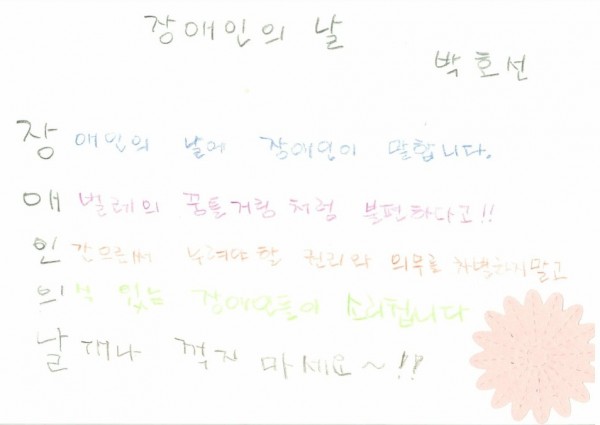 장애인의 날
박호선
장애인의 날에 장애인이 말합니다.
애벌레의 꿈틀거림 처럼 불편하다고!!
인간으로써 누려야 할 권리와 의무로 차별하지말고
의 있는 장애인들이 소리칩니다
날개나 꺾지 마세요~!!